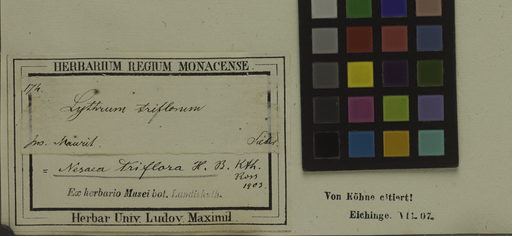 HERBARIUM REGIUM MONACENSE.
174.
Lythrum triflorum
Ins. Maurit. Sieber
= Nesaea triflora H. B. Kth.
Ex herbario Musei bot. Landishuth.
1903
Herbar Univ. Ludov. Maximil.
Von Köhne citiert!
Eichinge. VII. 07.